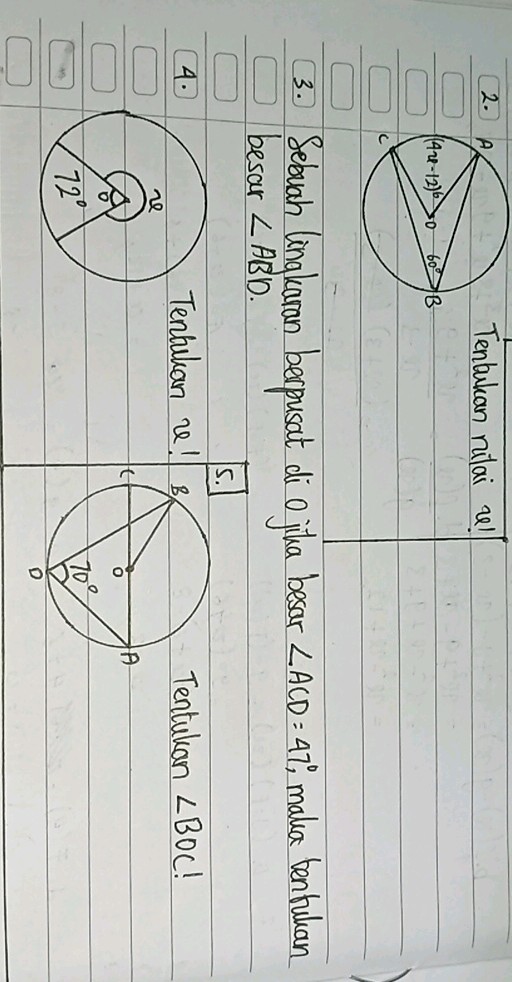 2.
A
(4x-12)°
O
60°
B
C
Tentukan nilai x!
3. Sebuah lingkaran berpusat di O jika besar ∠ACD = 47°, maka tentukan
besar ∠ABD.
4.
x
O
72°
Tentukan x!
5.
B
C
O
A
70°
D
Tentukan ∠BOC!